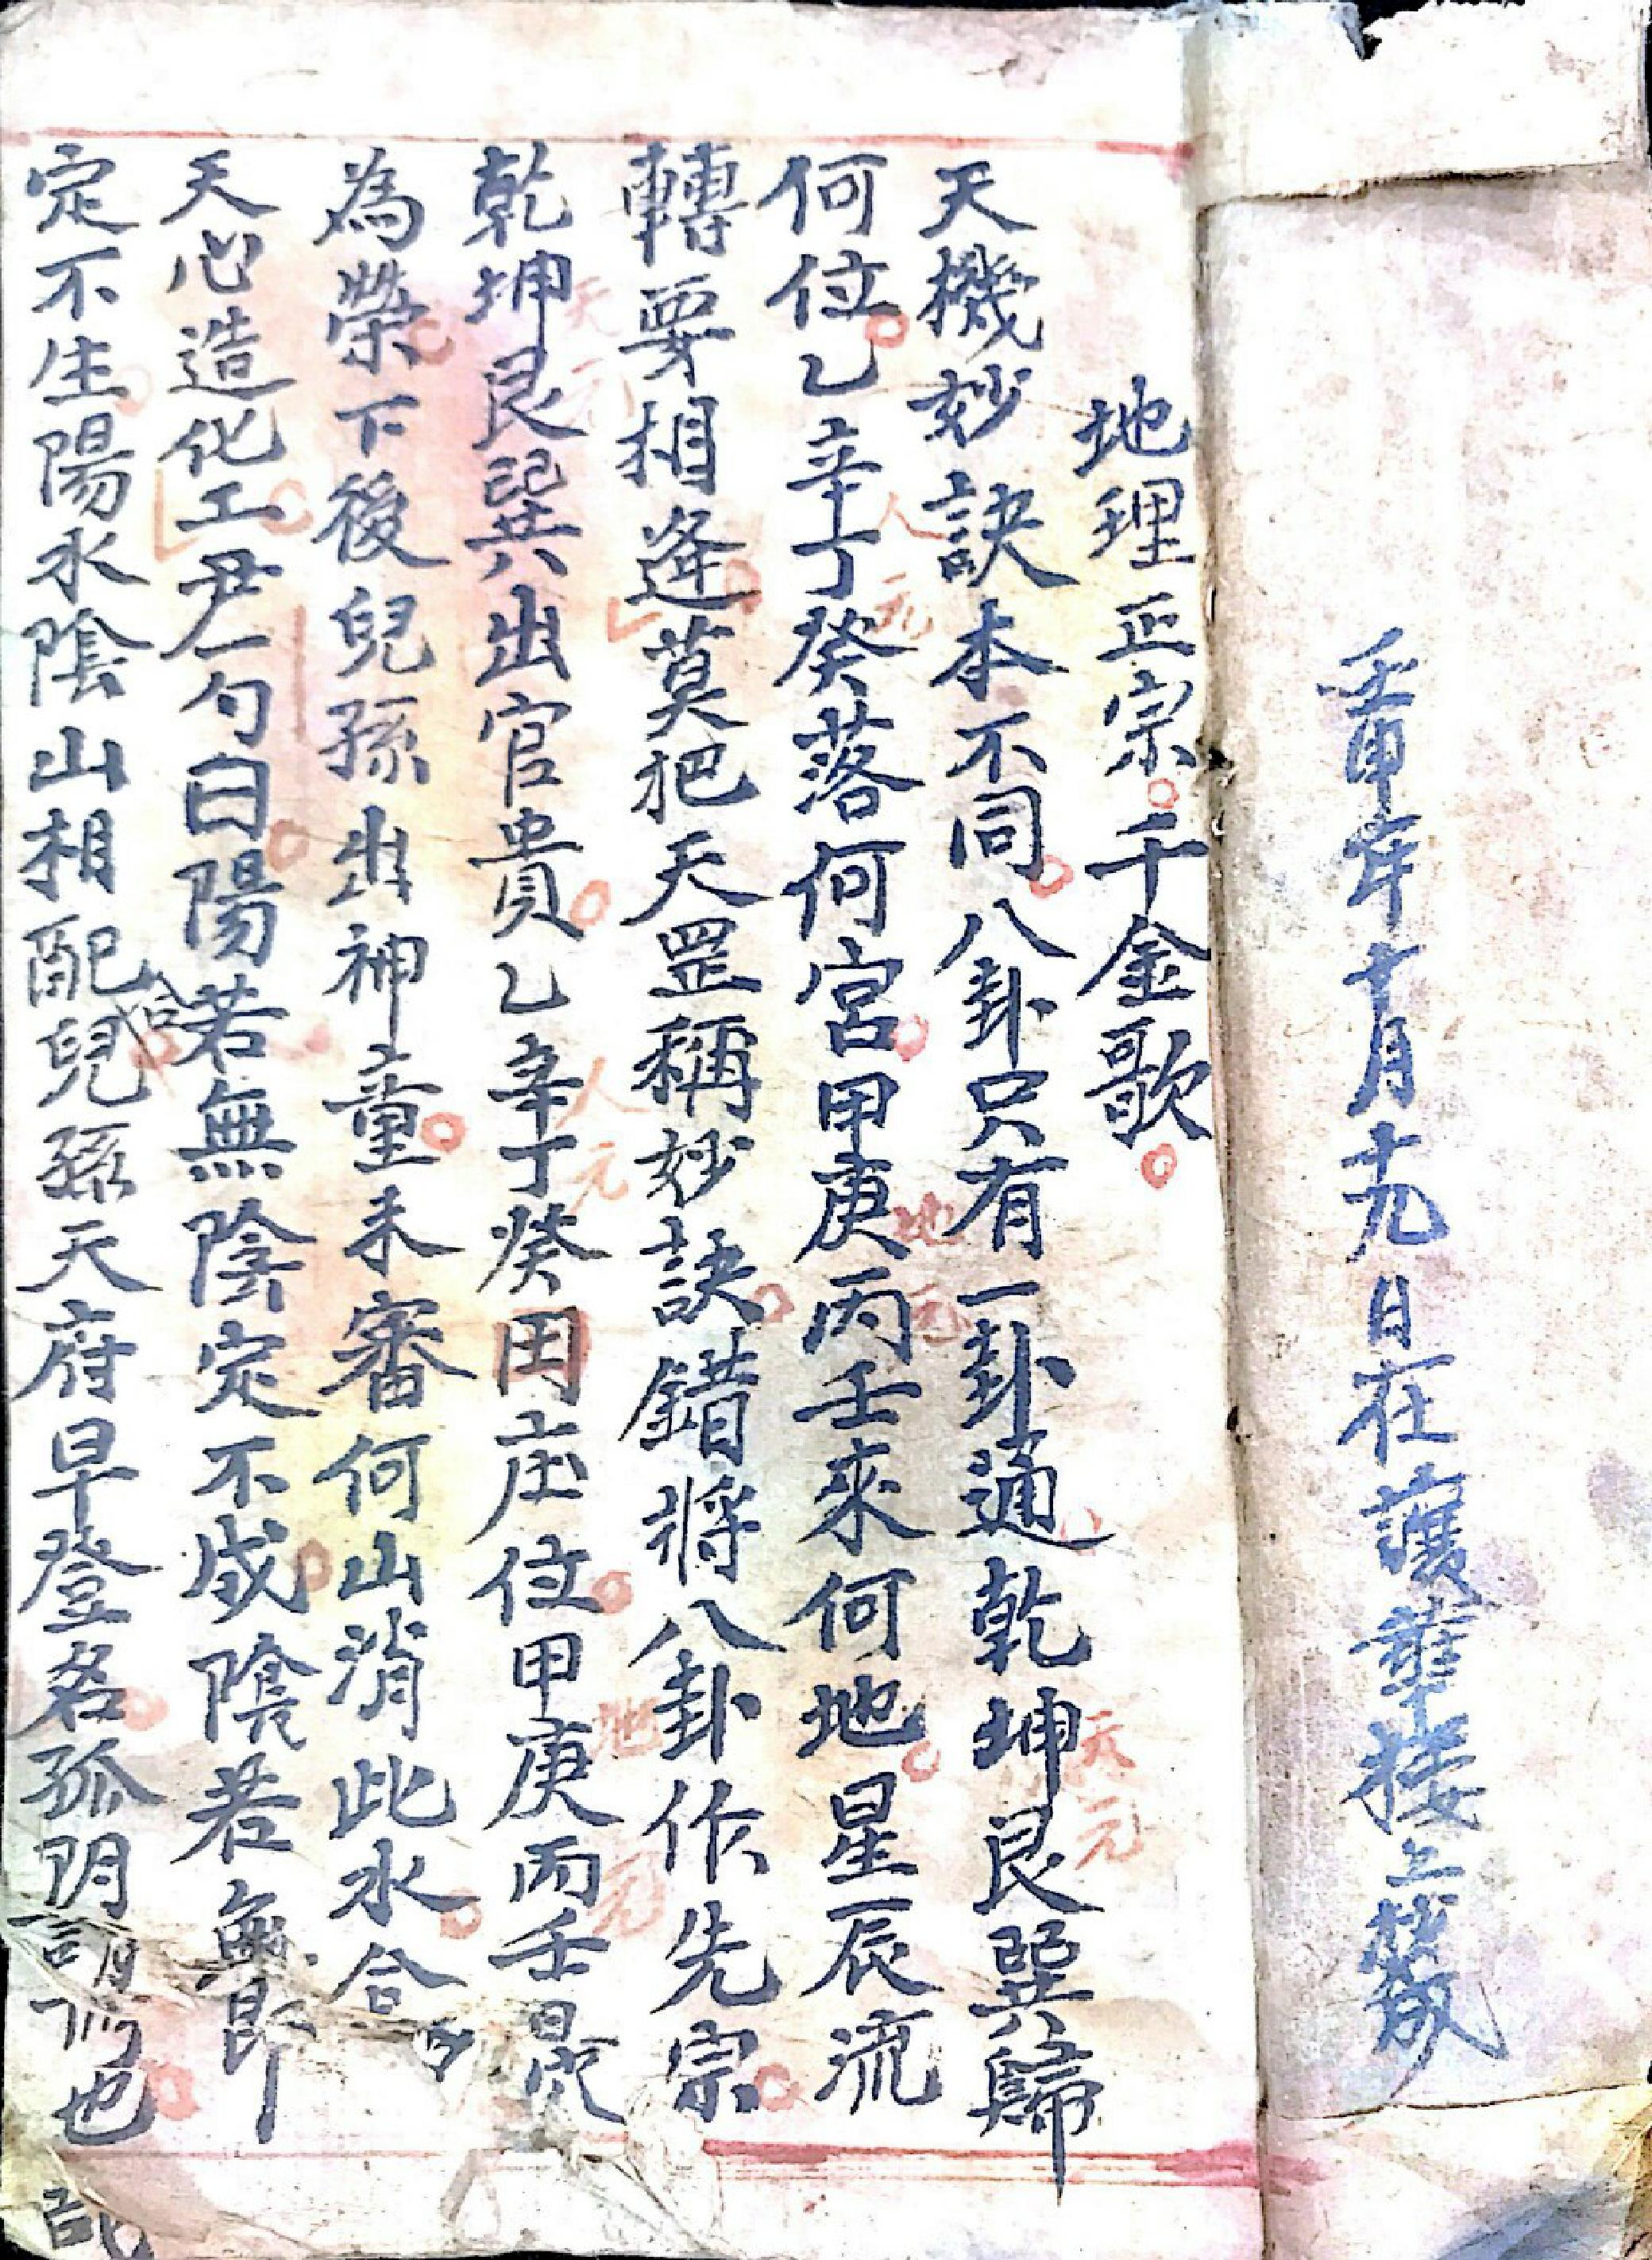 壬申年十月十九日在護華接上
地理正宗。千金歌。
天機妙訣本不同。八卦只有一卦通乾坤艮巽歸
天元
何位。乙辛丁癸落何宮。甲庚丙壬來何地。星辰流
人元
地元
轉要相逢莫把天罡稱妙訣。錯將八卦作先宗。
乾坤艮巽出官貴。乙辛丁癸田庄位。甲庚丙壬
天元
人元
地元
為榮。下後兒孫出神童。未審何山消此水。合
天心造化工尹一勺白陽若無陰定不成。陰若無
定不生陽水陰山相配兒孫天府早登名。孤
也。